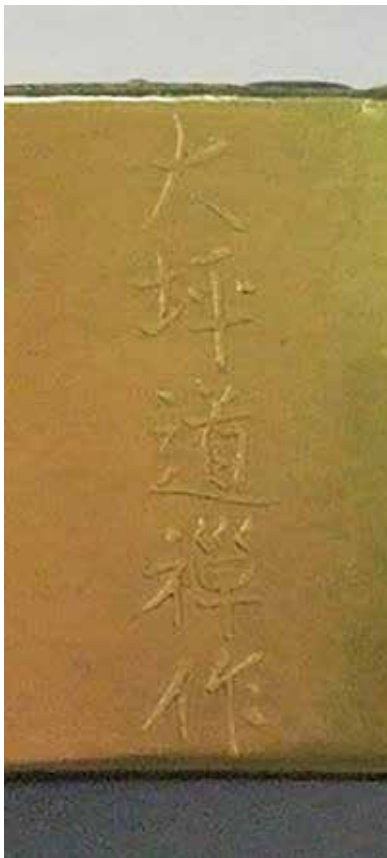 大坪道禅作